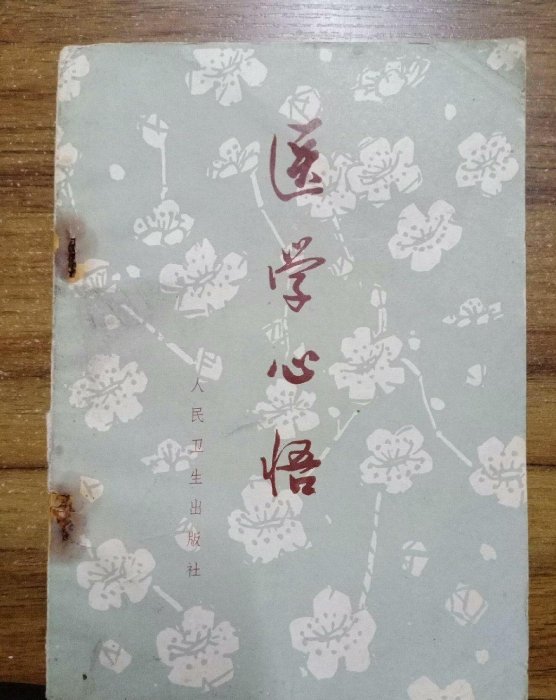 医学心悟
人民卫生出版社